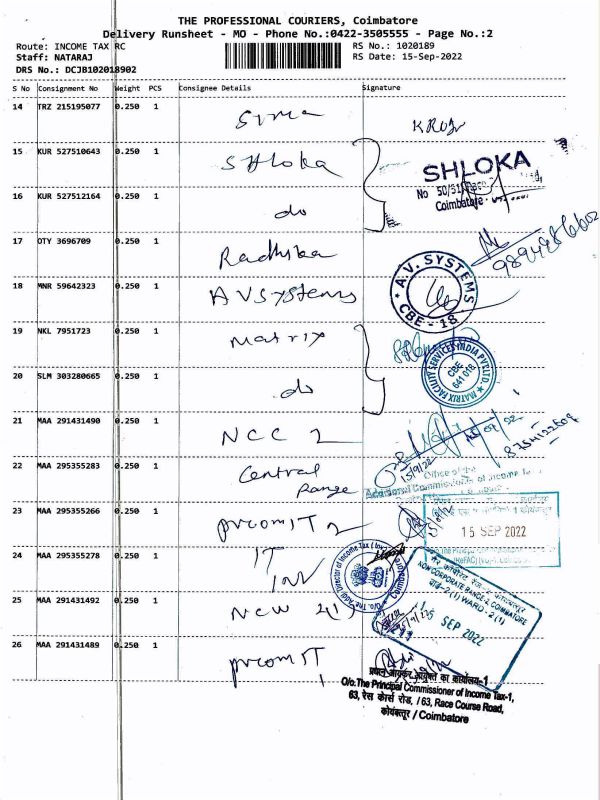 THE PROFESSIONAL COURIERS, Coimbatore
Delivery Runsheet - MO - Phone No.:0422-3505555 - Page No.:2
Route: INCOME TAX RC
RS No.: 1020189
Staff: NATARAJ
RS Date: 15-Sep-2022
DRS No.: DCJB102018902
S No Consignment No Weight PCS Consignee Details Signature
14 TRZ 215195077 0.250 1
15 KUR 527510643 0.250 1 SHloka
SHLOKA
No 50/51
Coimbatore
16 KUR 527512164 0.250 1 do
17 OTY 3696709 0.250 1 Radhika
18 MNR 59642323 0.250 1 AVSystems
A.V. SYSTEMS
CBE - 18
19 NKL 7951723 0.250 1 matrix
MATRIX FACILITY SERVICES INDIA PVT LTD.
CBE
641 018
20 SLM 303280665 0.250 1 do
21 MAA 291431490 0.250 1 NCC 2
22 MAA 295355283 0.250 1 Central
Range
15/9/22
Office of the
Additional Commissioner of Income Tax
23 MAA 295355266 0.250 1 prcomIT 2
15 SEP 2022
24 MAA 295355278 0.250 1 IT
Inv
25 MAA 291431492 0.250 1 NCW 2(1)
NON CORPORATE RANGE-2, COIMBATORE
WARD - 2 (1)
15 SEP 2022
26 MAA 291431489 0.250 1 prcomIT
1
प्रधान आयकर आयुक्त का कार्यालय-1
O/o. The Principal Commissioner of Income Tax-1,
63, रेस कोर्स रोड, / 63, Race Course Road,
कोयंबत्तूर / Coimbatore